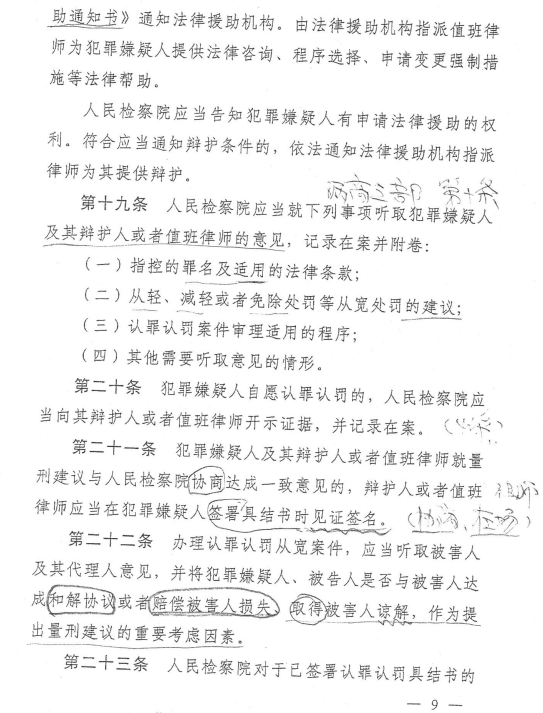 助通知书》通知法律援助机构。由法律援助机构指派值班律
师为犯罪嫌疑人提供法律咨询、程序选择、申请变更强制措
施等法律帮助。
人民检察院应当告知犯罪嫌疑人有申请法律援助的权
利。符合应当通知辩护条件的，依法通知法律援助机构指派
律师为其提供辩护。
第十条
第十九条 人民检察院应当就下列事项听取犯罪嫌疑人
及其辩护人或者值班律师的意见，记录在案并附卷：
（一）指控的罪名及适用的法律条款；
（二）从轻、减轻或者免除处罚等从宽处罚的建议；
（三）认罪认罚案件审理适用的程序；
（四）其他需要听取意见的情形。
第二十条 犯罪嫌疑人自愿认罪认罚的，人民检察院应
当向其辩护人或者值班律师开示证据，并记录在案。
第二十一条 犯罪嫌疑人及其辩护人或者值班律师就量
刑建议与人民检察院协商达成一致意见的，辩护人或者值班
律师应当在犯罪嫌疑人签署具结书时见证签名。（协商、在场）
第二十二条 办理认罪认罚从宽案件，应当听取被害人
及其代理人意见，并将犯罪嫌疑人、被告人是否与被害人达
成和解协议或者赔偿被害人损失，取得被害人谅解，作为提
出量刑建议的重要考虑因素。
第二十三条 人民检察院对于已签署认罪认罚具结书的
— 9 —